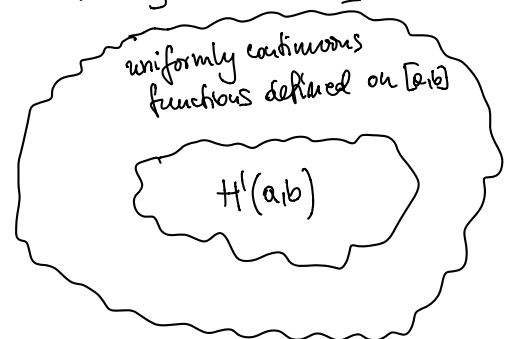 uniformly continuous
functions defined on [a,b]
H¹(a,b)